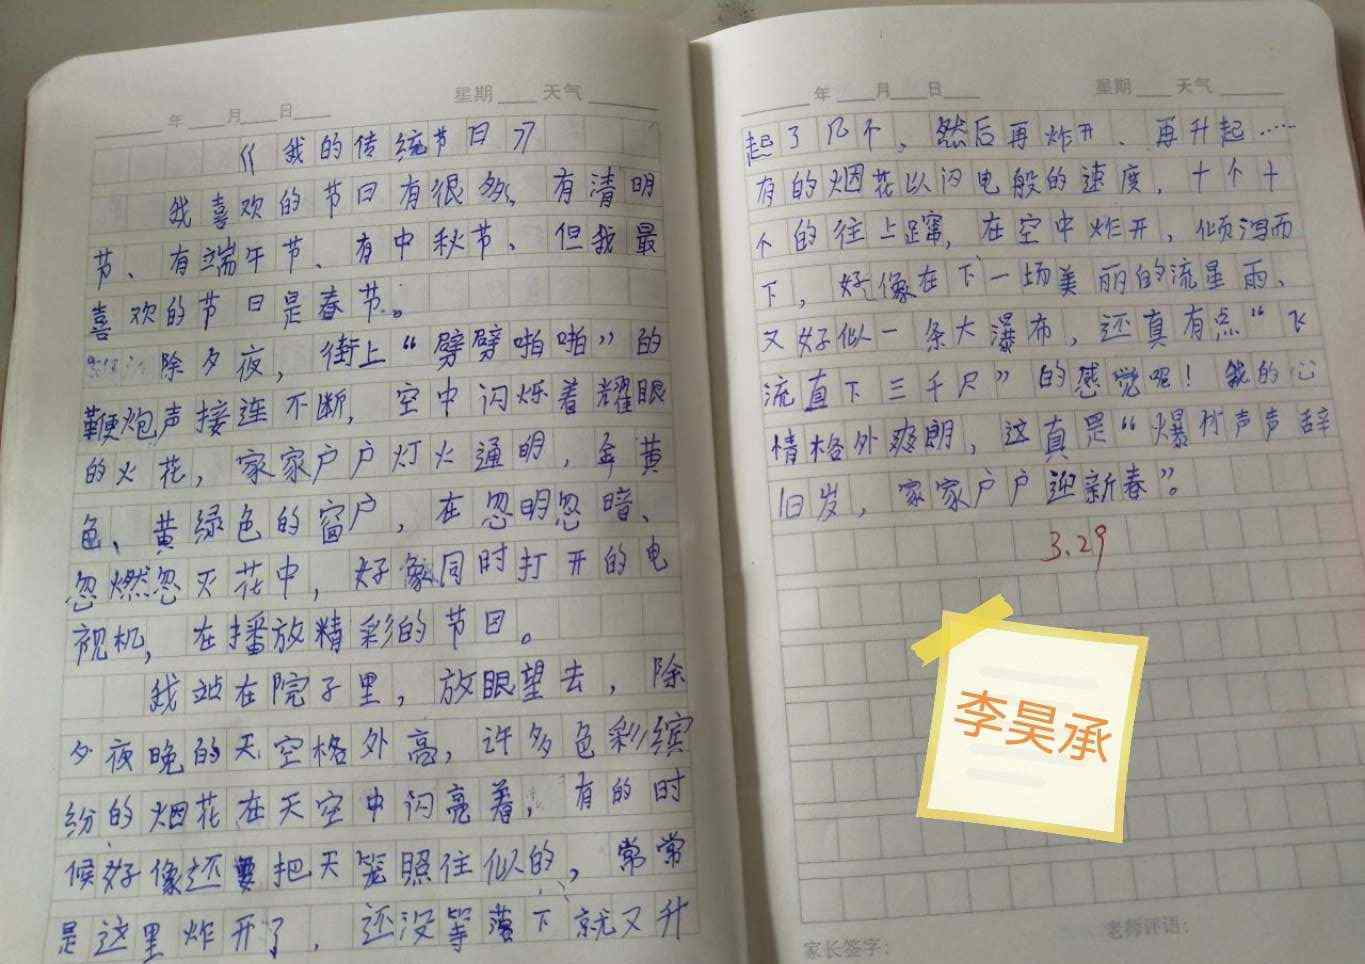 年 月 日 星期 天气
《我的传统节日》
我喜欢的节日有很多,有清明
节、有端午节、有中秋节、但我最
喜欢的节日是春节。
除夕夜,街上“劈劈啪啪”的
鞭炮声接连不断,空中闪烁着耀眼
的火花,家家户户灯火通明,年黄
色、黄绿色的窗户,在忽明忽暗、
忽燃忽灭花中,好像同时打开的电
视机,在播放精彩的节目。
我站在院子里,放眼望去,除
夕夜晚的天空格外亮,许多色彩缤
纷的烟花在天空中闪亮着,有的时
候好像还要把天笼照住似的,常常
是这里炸开了,还没等落下就又升
年 月 日 星期 天气
起了几个,然后再炸开、再升起……
有的烟花以闪电般的速度,十个十
个的往上蹿,在空中炸开,倾泻而
下,好像在下一场美丽的流星雨、
又好似一条大瀑布,还真有点“飞
流直下三千尺”的感觉呢!我的心
情格外爽朗,这真是“爆竹声声辞
旧岁,家家户户迎新春”。
3.29
李昊承
老师评语:
家长签字: